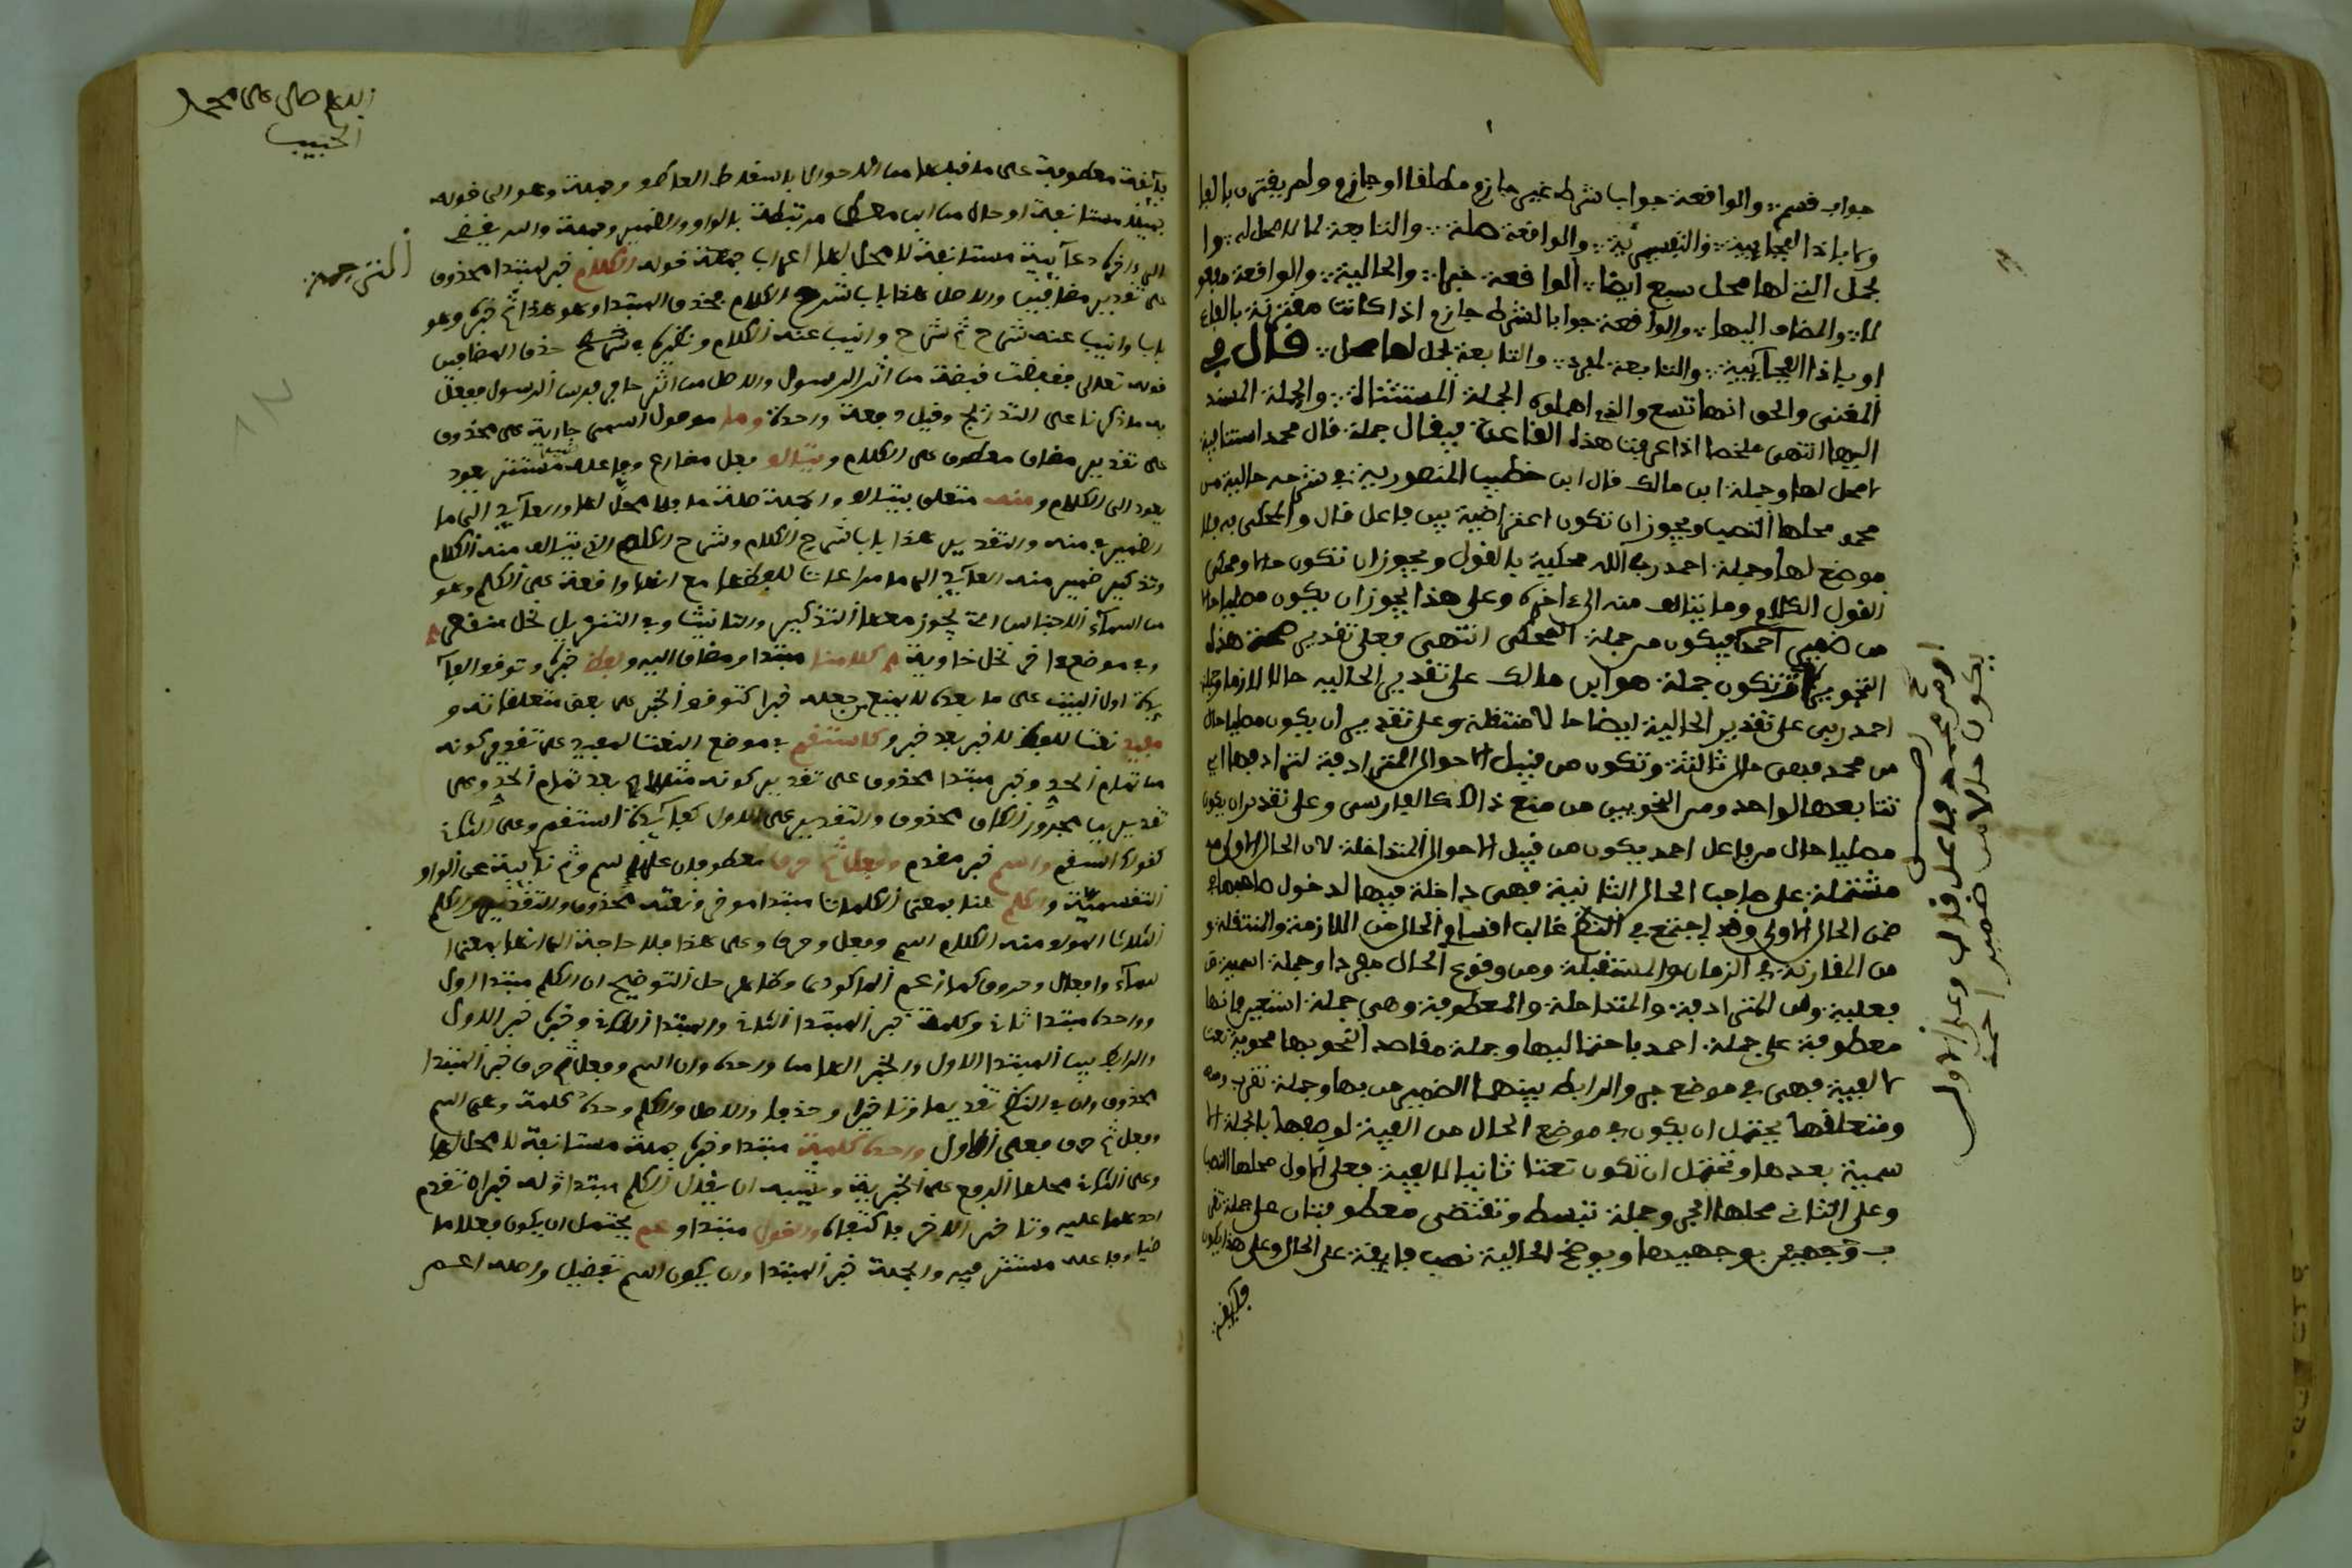 جواب قسم والواقعة جواب شرط غير جازم مطلقا او جازم ولم يقترن بالفا
وكا باذا الفجايية والتفسيرية والواقعة صلة والتابعة لما لا محل له وا
لجمل التي لها محل سبع ايضا الواقعة خبرا والحالية والواقعة مفعو
لا والمضاف اليها والواقعة جوابا لشرط جازم اذا كانت مقترنة بالفاء
او باذا الفجآيية والتابعة لمفرد والتابعة لجملة لها محل قال في
المغني والحق انها تسع والذي اهملوه الجملة المستثناة والجملة المسند
اليها انتهى ملخصا اذا عرفت هذه القاعدة فيقال جملة قال محمد استئنافية
لا محل لها وجملة ابن مالك قال ابن خطيب المنصورية في شرحه حالية من
محمد محلها النصب ويجوز ان تكون اعتراضية بين فاعل قال والمحكي به فلا
موضع لها وجملة احمد ربي الله محكية بالقول ويجوز ان تكون حالا ومحكى
القول الكلام وما يتألف منه الى ءاخره وعلى هذا يجوز ان يكون مصليا حالا
من ضمير احمد فيكون من جملة المحكى انتهى فعلى تقدير صحة هذا
التجويز فتكون جملة هو ابن مالك على تقدير الحالية حالا لازما وجملة
احمد ربي على تقدير الحالية ايضا حالا منتقلة وعلى تقدير ان يكون مصليا حال
من محمد فهى حال ثالثة وتكون من قبيل الاحوال المترادفة لترادفها اي
تتابعها لواحد ومن النحويين من منع ذالك كالفارسي وعلى تقدير ان يكون
مصليا حال من فاعل احمد يكون من قبيل الاحوال المتداخلة لان الحال الاولى
مشتملة على صاحب الحال الثانية فهى داخلة فيها لدخول صاحبها في
ضمن الحال الاولى وقد اجتمع في النظم غالب اقسام الحال من اللازمة والمنتقلة و
من المقارنة في الزمان والمستقبلة ومن وقوع الحال مفردا وجملة اسمية و
فعلية ومن المترادفة والمتداخلة والمعطوفة وهي جملة استعين فانها
معطوفة على جملة احمد باحتماليها وجملة مقاصد النحو بها محوية نعت
لالفية فهى في موضع جر والرابط بينهما الضمير من بها وجملة تقرب
ومتعلقها يحتمل ان يكون في موضع الحال من الفية لوصفها بالجملة الا
سمية بعدها وتحتمل ان تكون نعتا ثانيا لالفية فعلى الاول محلها النصب
وعلى الثاني محلها الجر وجملة تبسط وتقتضى معطوفتان على جملة تقر
ب وجهيها وبوضح الحالية نصب فايقة على الحال وعلى هذا يكون
فايقة
او من محمد فاعل قال وعلى الاول
يكون حالا من ضمير احمد
اللهم صل على محمد
الحبيب
فآيقة معطوفة على ما قبلها من الاحوال باسقاط العاطف وجملة وهو الى قوله
جميلا مستانفة او حال من ابن معط مرتبطة بالواو والضمير وجملة والله يقضى
الى ءاخرها دعآئية مستانفة لا محل لها اعراب جملة قوله الكلام خبر لمبتدا محذوف
على تقدير مضافين والاصل هذا باب شرح الكلام محذف المبتدا وهو هذا ثم خبره وهو
باب وانيب عنه شرح ثم شرح وانيب عنه الكلام ونظيره في شرح حذف المضافين
قوله تعالى فقبضت قبضة من اثر الرسول والاصل من اثر حافر فرس الرسول ففعل
به ما ذكرنا على التدريج وقيل دفعة واحدة وما موصول اسمى جارية على محذوف
على تقدير مضاف معطوف على الكلام ويتالف فعل مضارع وفاعله مستتر يعود
يعود الى الكلام ومنه متعلق بيتالف والجملة صلة ما فلا محل لها والعآيد الى ما
الضمير في منه والتقدير هذا باب شرح الكلام وشرح الكلم الذي يتالف منه الكلام
وتذكير ضمير منه العآيد الى ما مراعاتا للفظها مع انها واقعة على الكلم وهو
من اسمآء الاجناس التي يجوز معها التذكير والتانيث وفي التنزيل نخل منقعر
وفي موضع ءاخر نخل خاوية كلامنا مبتدا ومضاف اليه ولفظ خبره وتوقف الفآ
يدة اول البيت على ما بعده لا يمنع من جعله خبرا كتوقف الخبر على بعض متعلقاته و
مفيد نعت للفظ لا خبر بعد خبر وكاستقم في موضع النعت لمفيد على تقدير كونه
من تمام الحد وخبر مبتدا محذوف على تقدير كونه مثالا بعد تمام الحد وعلى
تقدير يت المجرور الكاف محذوف والتقدير على الاول كفآيدة استقم وعلى الثاني
كقولك استقم واسم خبر مقدم وفعل ثم حرف معطوفان على اسم وثم نآيبة عن الواو
التقسيمية والكلم هنا بمعنى الكلمات مبتدا موخر ونعته محذوف والتقدير والكلم
الثلاث المولف منه الكلام اسم وفعل وحرف وعلى هذا فلا حاجة الى انها بمعنى ا
سمآء وافعال وحروف كما زعم الماكودي وظاهر حل التوضيح ان الكلم مبتدا اول
وواحده مبتدا ثان وكلمة خبر المبتدا الثاني والمبتدا الثاني وخبره خبر الاول
والرابط بين المبتدا الاول والخبر الهاء من واحده وان اسم وفعل ثم حرف خبر المبتدا
محذوف وان في النظم تقديما وتاخيرا وحذفا والاصل والكلم واحده كلمة وهى اسم
وفعل ثم حرف فعلى الاول واحده كلمة مبتدا وخبره جملة مستانفة لا محل لها
وعلى الثاني محلها الرفع على الخبرية ويشبه ان يقال الكلم مبتدا وله خبران تقدم
احدهما عليه وتاخر الاخر فاكتنفاه والقول مبتدا وعم يحتمل ان يكون فعلا ما
ضيا وفاعله مستتر فيه والجملة خبر المبتدا وان يكون اسم تفضيل واصله اعم